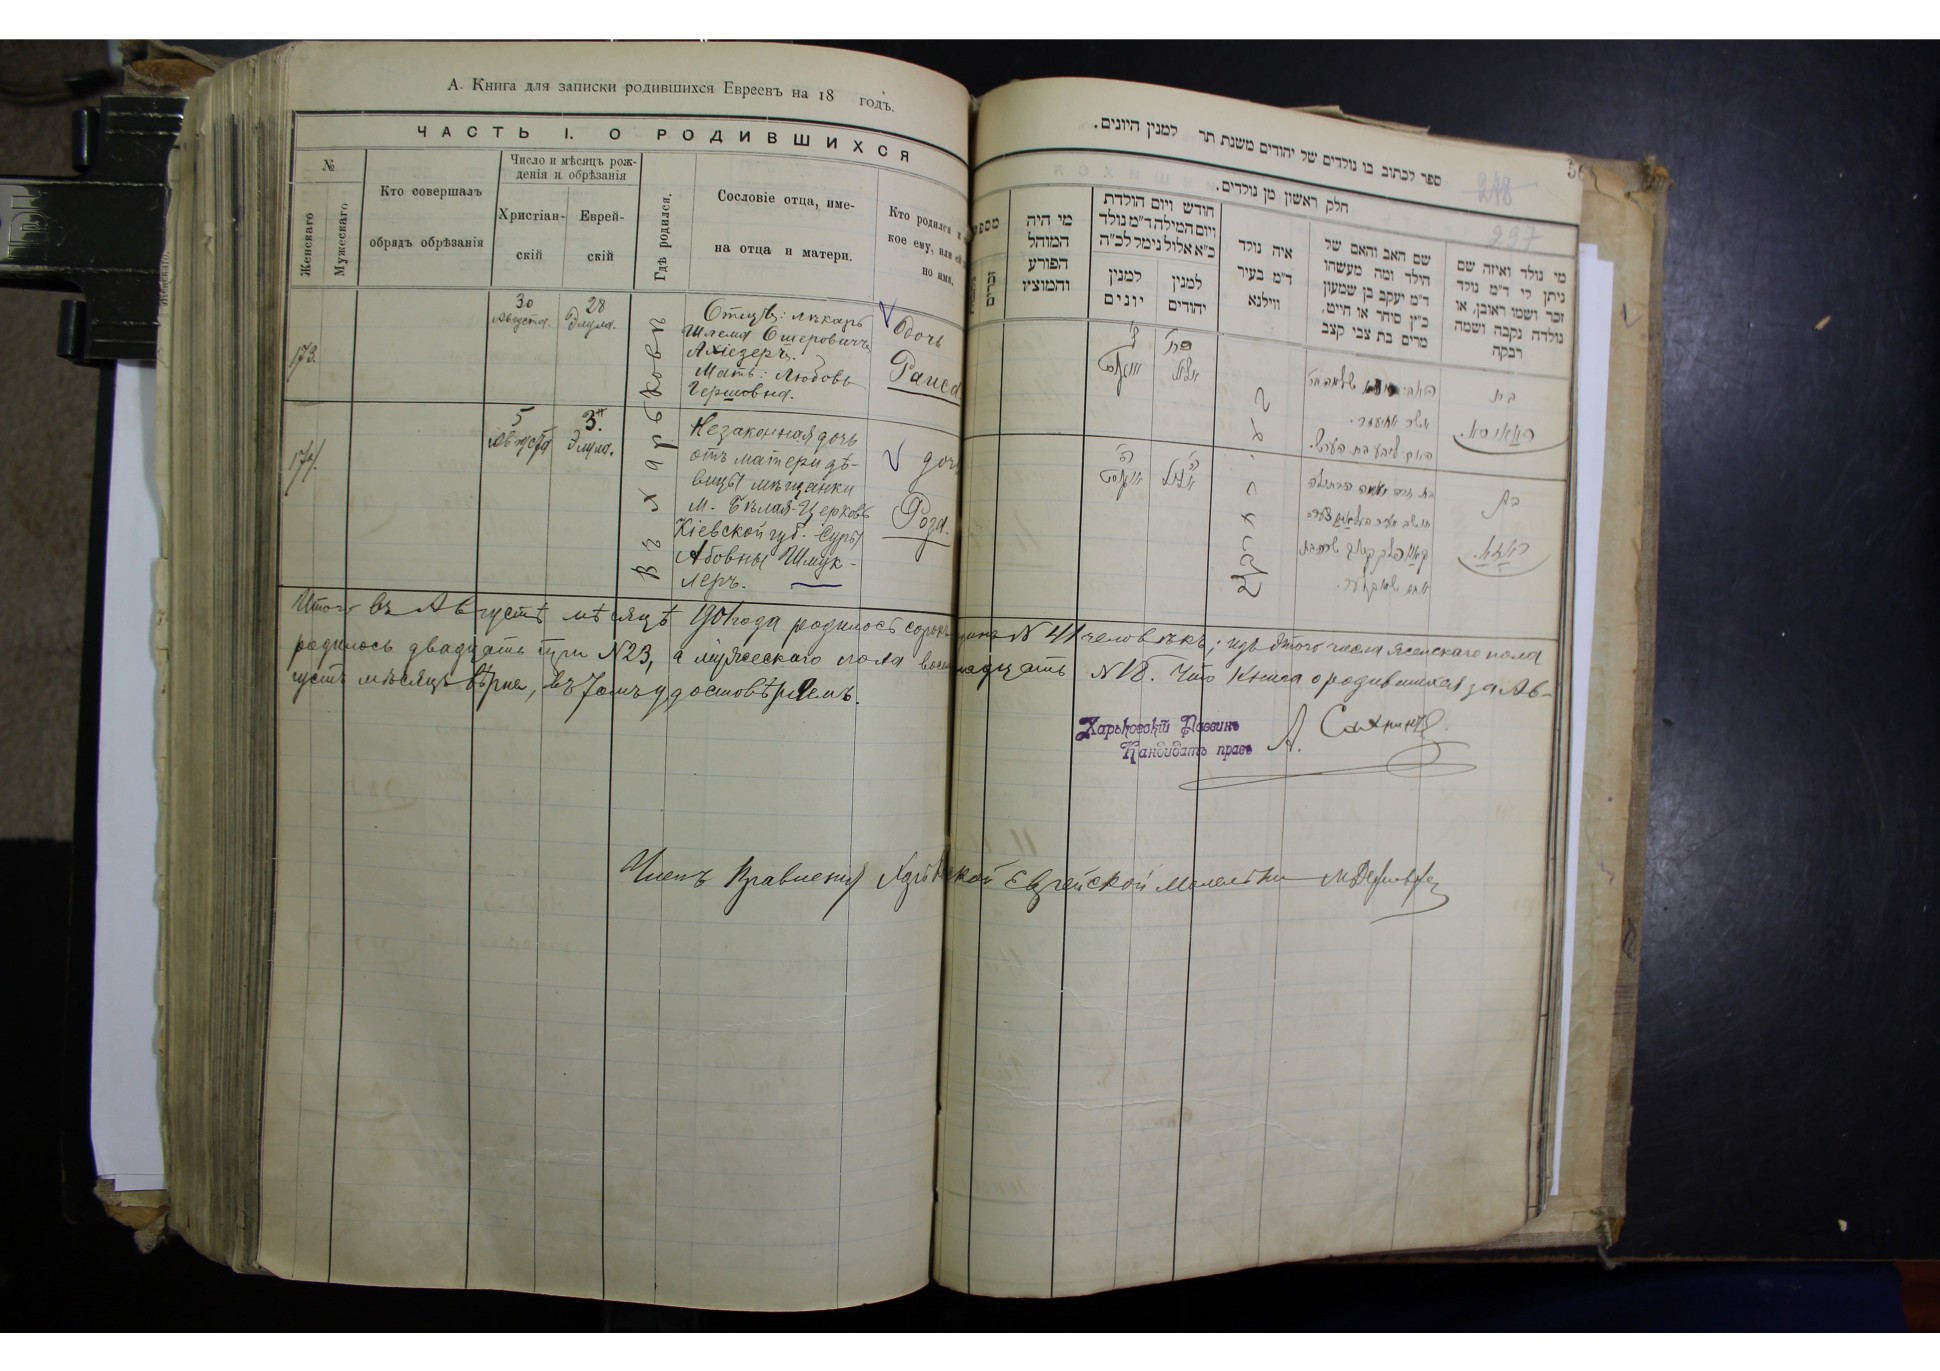 А. Книга для записки родившихся Евреевъ на 18 годъ.
ЧАСТЬ I. О РОДИВШИХСЯ
№
Женскаго
Мужескаго
Кто совершалъ
обрядъ обрѣзанія
Число и мѣсяцъ рож-
денія и обрѣзанія
Христіан-
скій
Еврей-
скій
Гдѣ родился.
Сословіе отца, име-
на отца и матери.
Кто родился и
кое ему, или ей
но имя.
173.
30
Августа.
28
Элула.
Въ Харьковѣ
Отецъ: лѣкарь
Шлема Ошеровичъ
Ахіезеръ.
Мать: Любовь
Гершовна.
дочь
Раиса
174.
5
Августа
3.
Элула.
Незаконная дочь
отъ матери дѣ-
вицы мѣщанки
м. Бѣлая-Церковь
Кіевской губ. Суры
Абовны Шмук-
леръ.
дочь
Роза.
ספר לכתוב בו נולדים של יהודים משנת תר למנין היונים.
חלק ראשון מן נולדים.
מספר
זכרים
מי היה
המוהל
הפורע
והמוציץ
חודש ויום הולדת
ויום המילה ד"מ נולד
כ"א אלול נימל לכ"ה
למנין
יונים
למנין
יהודים
איה נולד
ד"מ בעיר
ווילנא
שם האב והאם של
הילד ומה מעשהו
ד"מ יעקב בן שמעון
כ"ץ סוחר או חייט,
מרים בת צבי קצב
מי נולד ואיזה שם
ניתן לו ד"מ נולד
זכר ושמו ראובן, או
נולדה נקבה ושמה
רבקה
248
297
ל'
אויגוסט
אלול
אשר אחיעזר.
בת
ראאיסא.
ה'
אויגוסט
אלול
בת
ראזא.
Итого въ Августѣ мѣсяцѣ 1901 года родилось сорокъ одинъ № 41 человѣкъ; изъ этого числа женскаго пола
родилось двадцать три №23, а мужескаго пола восемнадцать №18. Что книга о родившихся за Ав-
густъ мѣсяцъ вѣрна, въ томъ удостовѣряемъ.
Харьковскій Раввинъ
Кандидатъ правъ
А.
Членъ Правленія Харьковской Еврейской Молельни